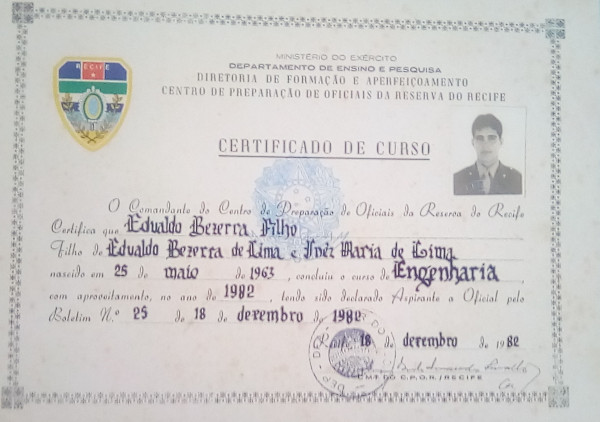 RECIFE
MINISTÉRIO DO EXÉRCITO
DEPARTAMENTO DE ENSINO E PESQUISA
DIRETORIA DE FORMAÇÃO E APERFEIÇOAMENTO
CENTRO DE PREPARAÇÃO DE OFICIAIS DA RESERVA DO RECIFE
CERTIFICADO DE CURSO
O Comandante do Centro de Preparação de Oficiais da Reserva do Recife
Certifica que Edualdo Bezerra Filho
Filho de Edualdo Bezerra de Lima e Inêz Maria de Lima
nascido em 25 de maio de 1963, concluiu o curso de Engenharia,
com aproveitamento, no ano de 1982, tendo sido declarado Aspirante a Oficial pelo
Boletim N.º 25 de 18 de dezembro de 1982
18 de dezembro de 1982
CMT DO C.P.O.R./RECIFE